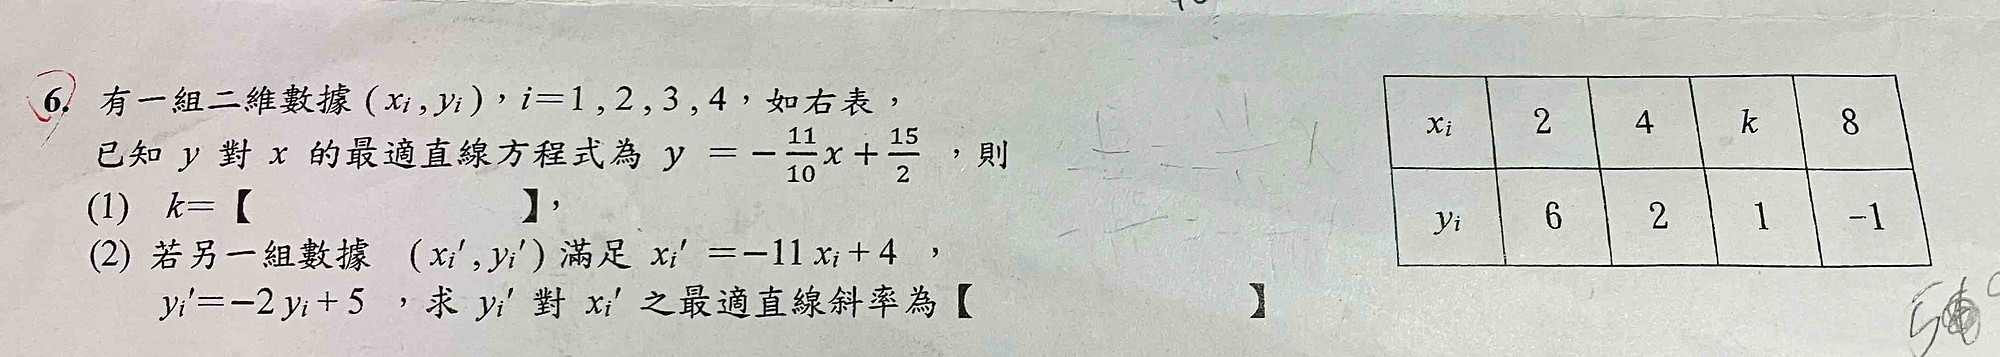 6. 有一組二維數據 (xᵢ, yᵢ)，i=1, 2, 3, 4，如右表，
已知 y 對 x 的最適直線方程式為 y = −11/10 x + 15/2，則
(1) k=【 】，
(2) 若另一組數據 (xᵢ′, yᵢ′) 滿足 xᵢ′ = −11 xᵢ + 4，
yᵢ′ = −2 yᵢ + 5，求 yᵢ′ 對 xᵢ′ 之最適直線斜率為【 】
xᵢ 2 4 k 8
yᵢ 6 2 1 −1